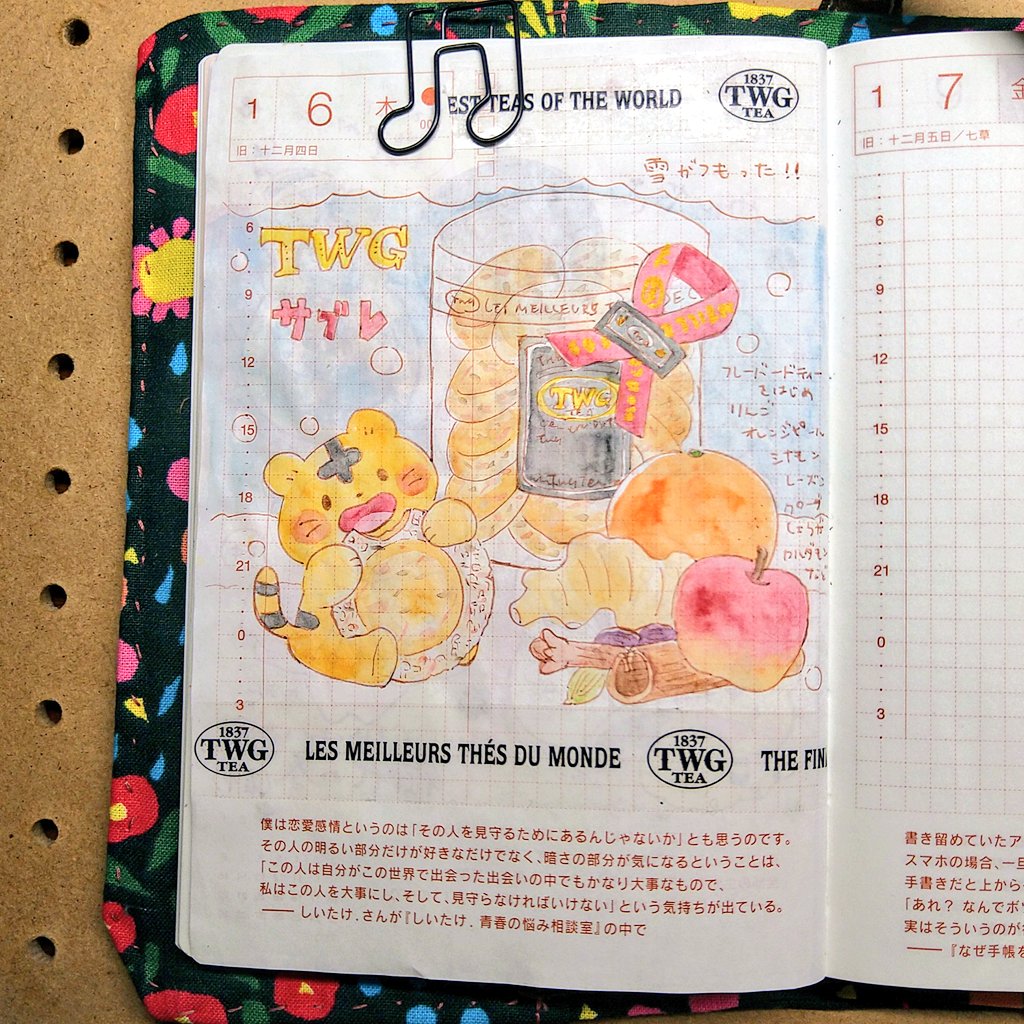 1 6 木
旧：十二月四日
EST TEAS OF THE WORLD
1837
TWG
TEA
雪がつもった!!
TWG
サブレ
LES MEILLEURS
TWG
TEA
フレーバードティー
をはじめ
りんご
オレンジピール
シナモン
レーズン
しょうが
カルダモン
など
6
9
12
15
18
21
0
3
1837
TWG
TEA
LES MEILLEURS THÉS DU MONDE
1837
TWG
TEA
THE FIN
僕は恋愛感情というのは「その人を見守るためにあるんじゃないか」とも思うのです。
その人の明るい部分だけが好きなだけでなく、暗さの部分が気になるということは、
「この人は自分がこの世界で出会った出会いの中でもかなり大事なもので、
私はこの人を大事にし、そして、見守らなければいけない」という気持ちが出ている。
―― しいたけ．さんが『しいたけ．青春の悩み相談室』の中で
1 7 金
旧：十二月五日／七草
6
9
12
15
18
21
0
3
書き留めていたア
スマホの場合、一旦
手書きだと上から
「あれ？ なんでボツ
実はそういうのが
――『なぜ手帳を